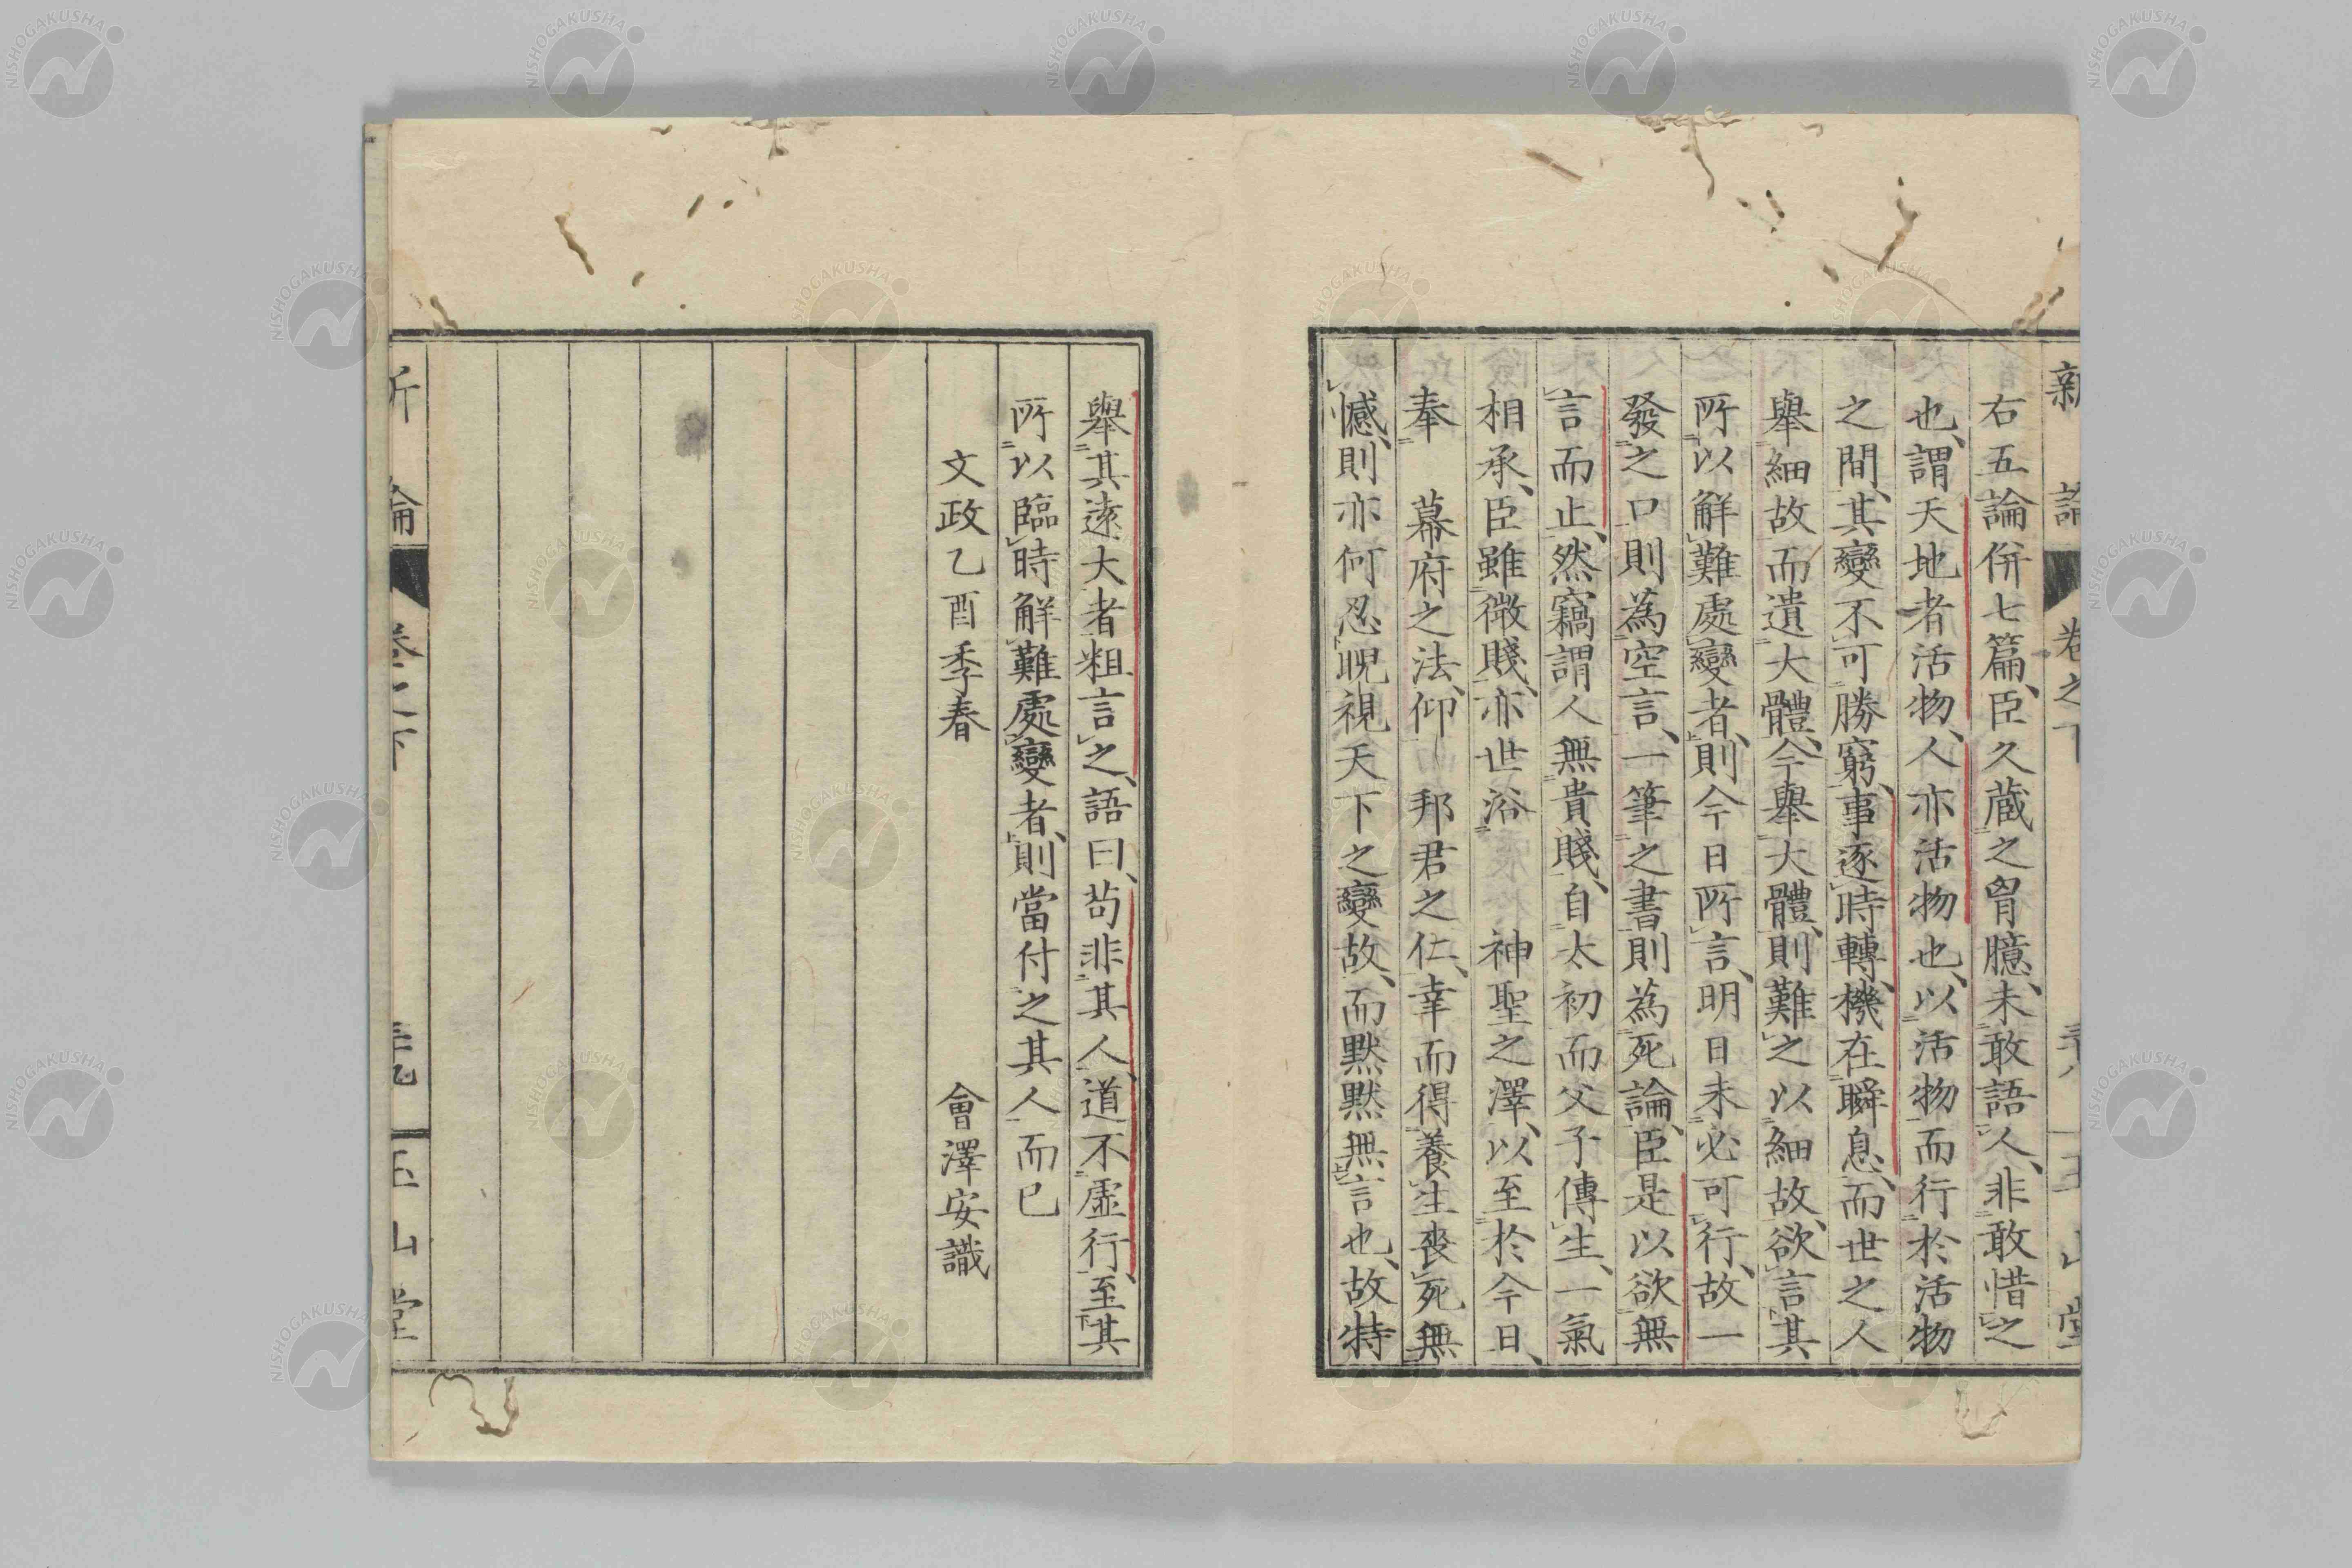 新論 卷之下
右五論併七篇、臣久蔵之胷臆、未敢語人、非敢惜之
也、謂天地者活物、人亦活物也、以活物而行於活物
之間、其變不可勝窮、事逐時轉、機在瞬息、而世之人
舉細故而遺大體、今舉大體、則難之以細故、欲言其
所以解難處變者、則今日所言、明日未必可行、故一
發之口則為空言、一筆之書則為死論、臣是以欲無
言而止、然竊謂人無貴賤、自太初而父子傳生、一氣
相承、臣雖微賤、亦世浴　神聖之澤、以至於今日、
奉　幕府之法、仰　邦君之仁、幸而得養生喪死無
憾、則亦何忍睨視天下之變故、而默默無言也、故特
舉其遠大者粗言之、語曰、苟非其人、道不虛行、至其
所以臨時解難處變者、則當付之其人而已
文政乙酉季春　會澤安識
玉山堂
NISHOGAKUSHA